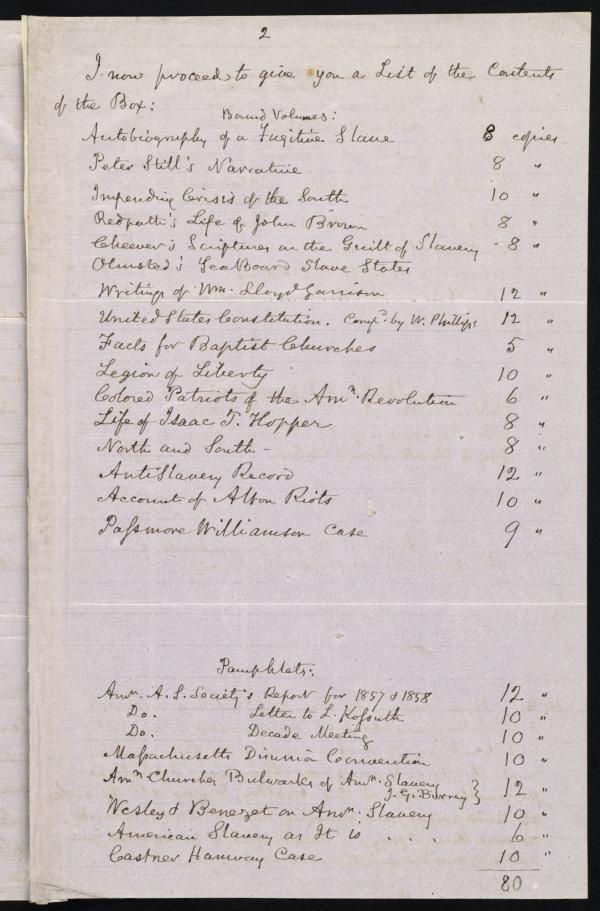 2
I now proceed to give you a List of the Contents
of the Box:
Bound Volumes:
Autobiography of a Fugitive Slave 8 copies
Peter Still's Narrative 8 "
Impending Crisis of the South 10 "
Redpath's Life of John Brown 8 "
Cheever's Scriptures on the Guilt of Slavery - 8 "
Olmsted's SeaBoard Slave States
Writings of Wm. Lloyd Garrison 12 "
United States Constitution. Comp.d by W. Phillips 12 "
Facts for Baptist Churches 5 "
Legion of Liberty 10 "
Colored Patriots of the Amn. Revolution 6 "
Life of Isaac T. Hopper 8 "
North and South - 8 "
AntiSlavery Record 12 "
Account of Alton Riots 10 "
Paſsmore Williamson Case 9 "
Pamphlets:
Amn. A. S. Society's Report for 1857 & 1858 12 "
Do. Letter to L. Koſsuth 10 "
Do. Decade Meeting 10 "
Maſsachusetts Disunion Convention 10 "
Amn. Churches Bulwarks of Amn. Slavery } 12 "
J. G. Birney }
Wesley & Benezet on Amn. Slavery 10 "
American Slavery as It is . . . . 6 "
Castner Hanway Case 10 "
80